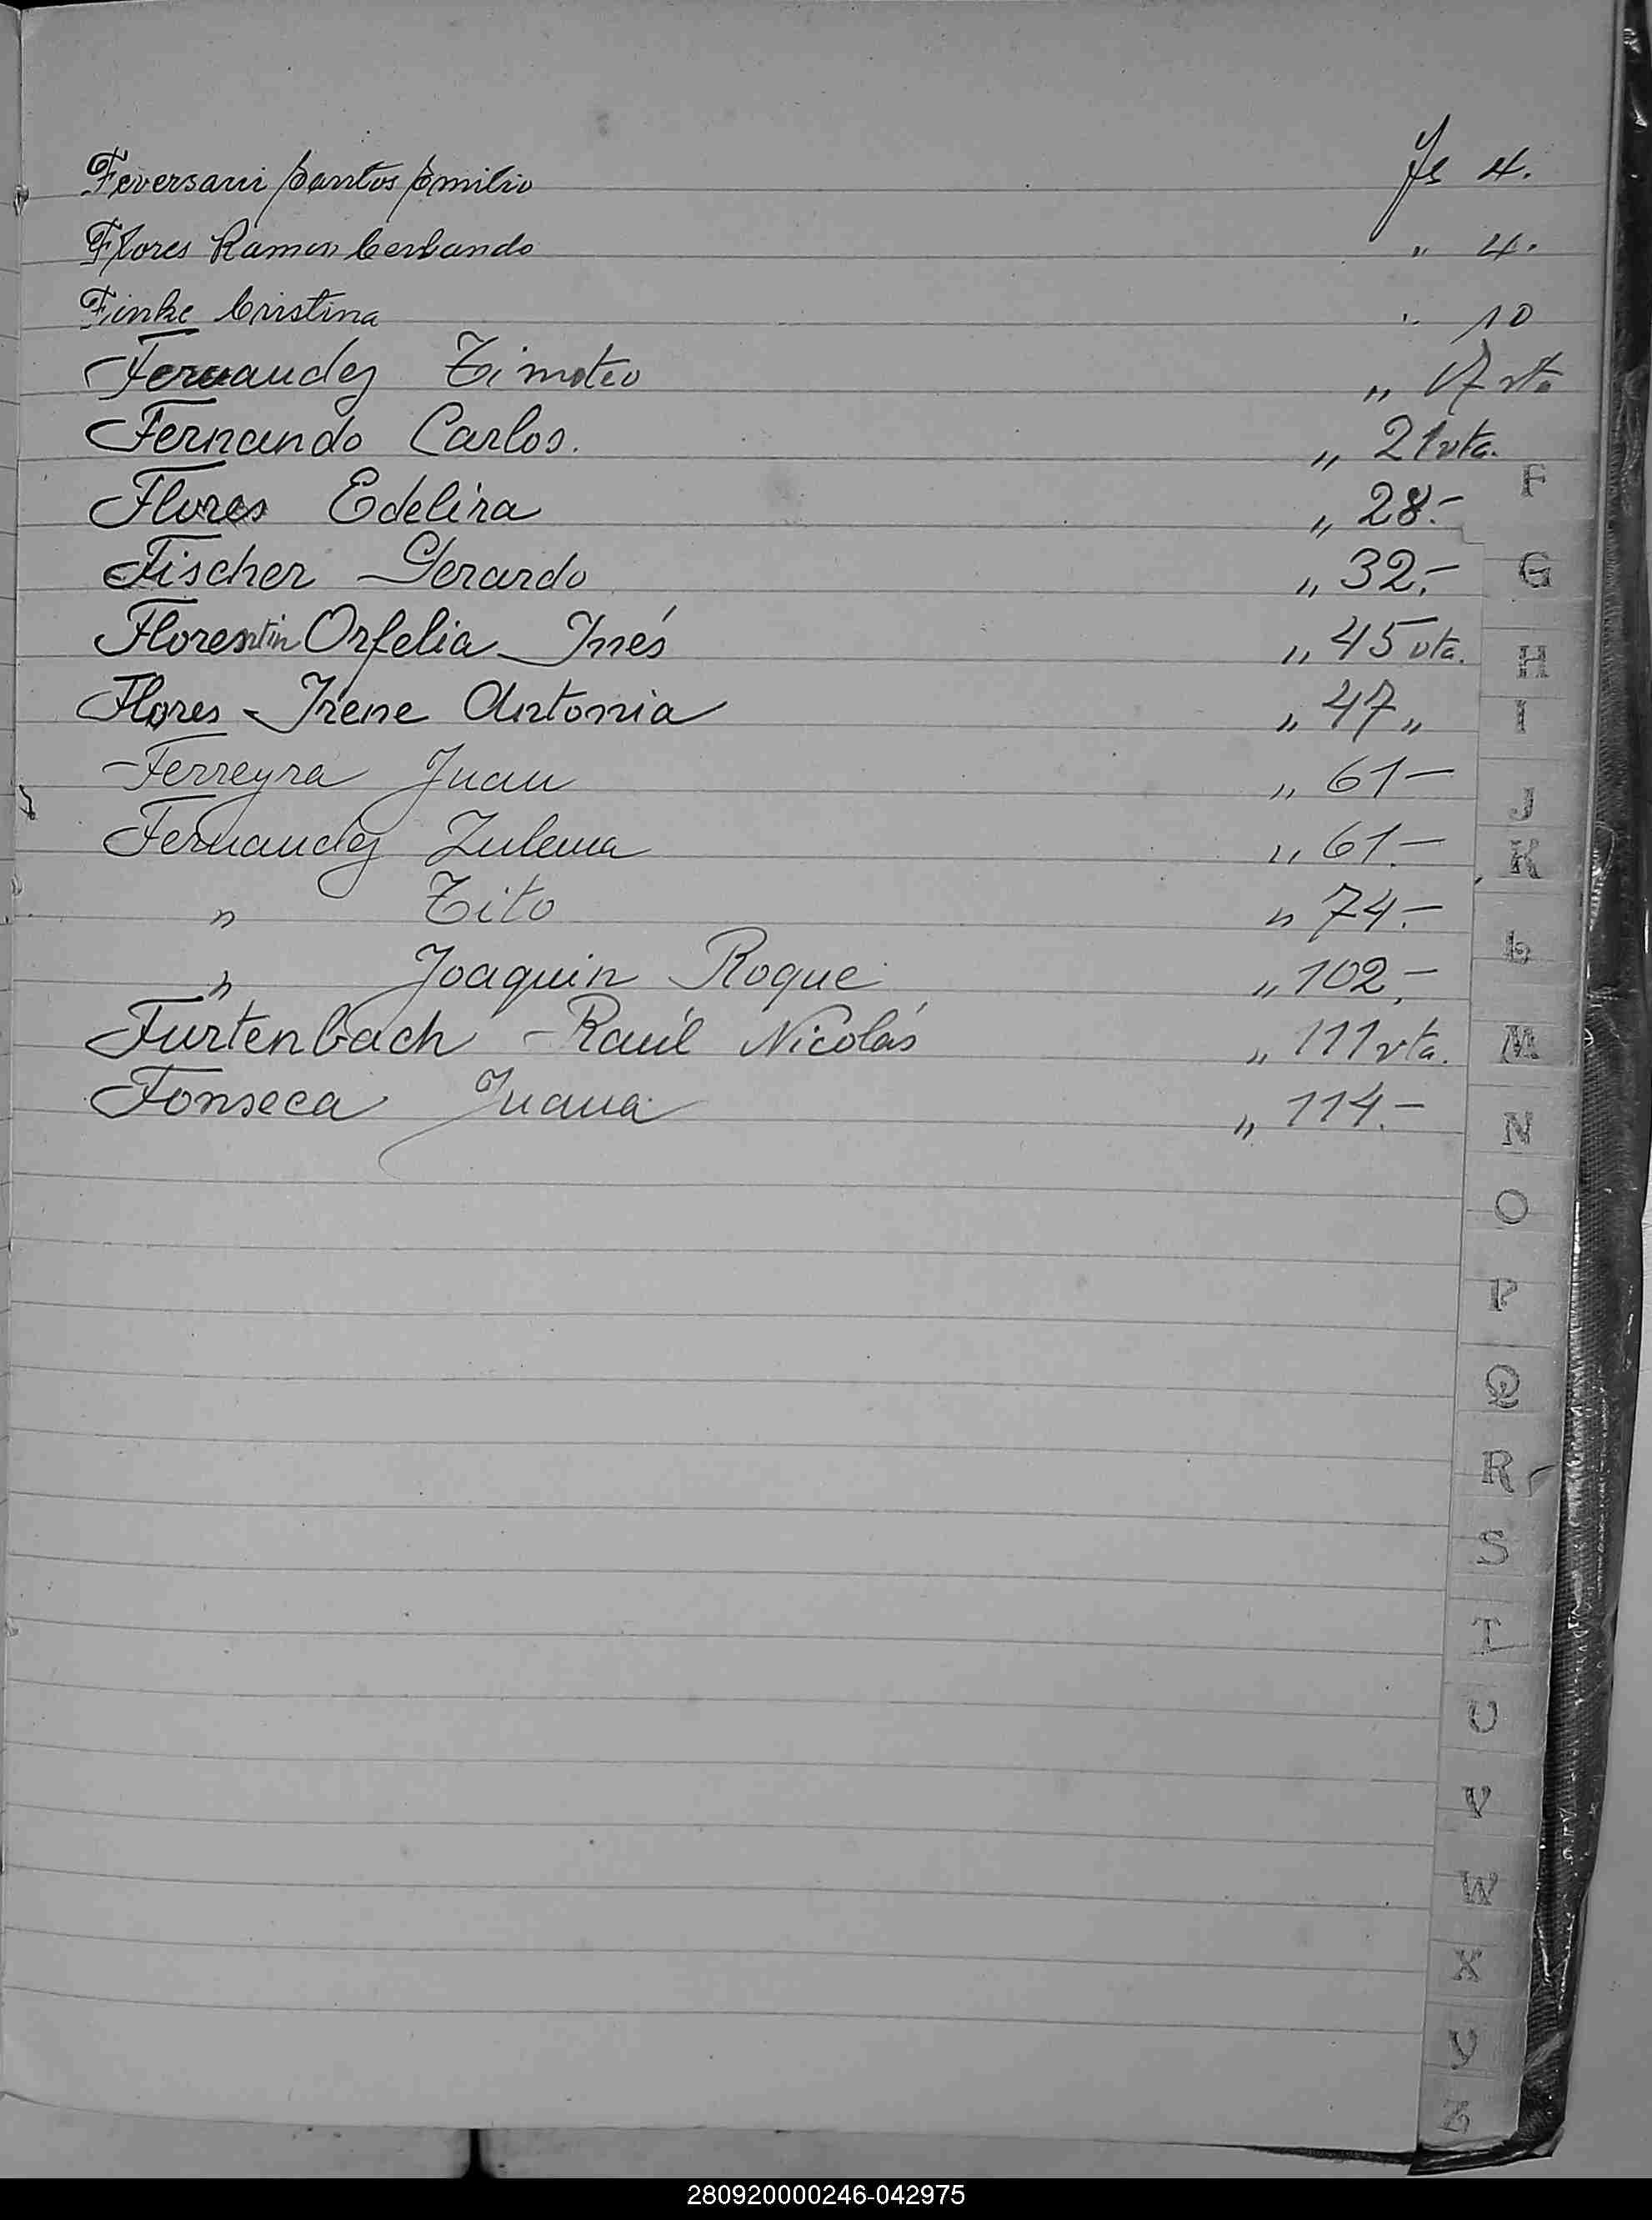 Feversani Santos Emilio Fs 4.
Flores Ramon Cerbando " 4.
Finke Cristina " 10
Fernandez Timoteo " 17 vta
Fernando Carlos. " 21 vta.
Flores Edelira " 28.-
Fischer Gerardo " 32.-
Florentin Orfelia Inés " 45 vta.
Flores - Irene Antonia " 47 "
Ferreyra Juan " 61 -
Fernandez Zulema " 61.-
" Tito " 74.-
" Joaquin Roque " 102.-
Furtenbach - Raúl Nicolás " 111 vta.
Fonseca Juana " 114.-
F
G
H
I
J
K
L
M
N
O
P
Q
R
S
T
U
V
W
X
Y
Z
280920000246-042975